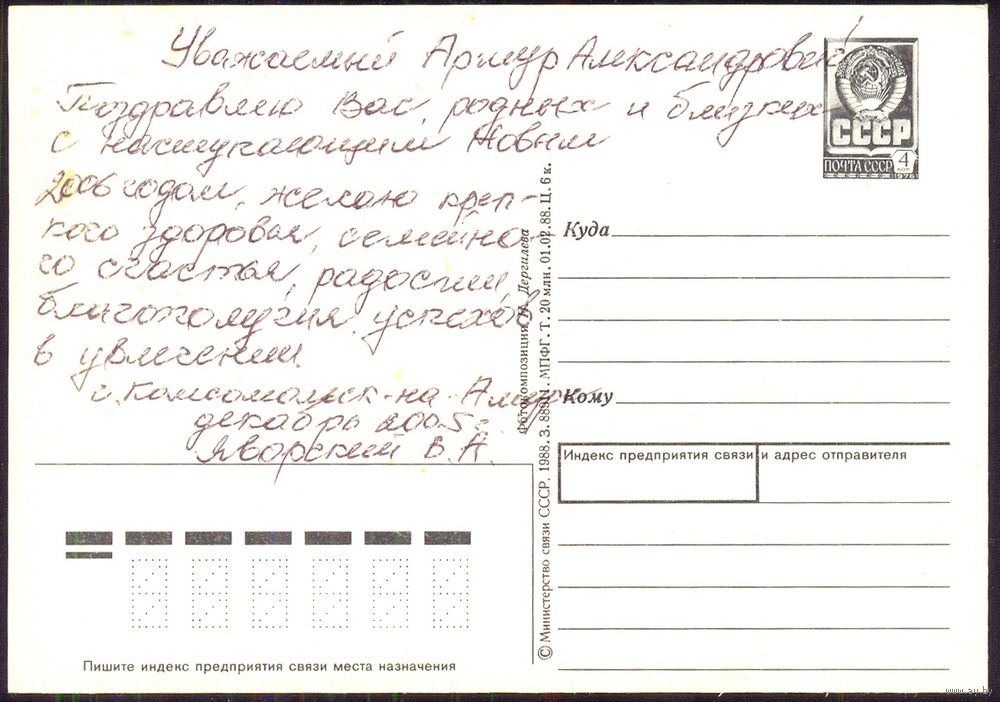 Уважаемый Артур Александрович!
Поздравляю Вас, родных и близких
с наступающим Новым
2006 годом, желаю креп-
кого здоровья, семейно-
го счастья, радости,
благополучия, успехов
в увлечении.
г. Комсомольск-на-Амуре
декабрь 2005г.
Яворский В.А.
СССР
ПОЧТА СССР
4
КОП
1976
Куда
Кому
Индекс предприятия связи и адрес отправителя
Фотокомпозиция Дергилева
© Министерство связи СССР, 1988. З. МПФГ. Т. 20 млн. 01.02.88. Ц. 6 к.
Пишите индекс предприятия связи места назначения
www.ay.by